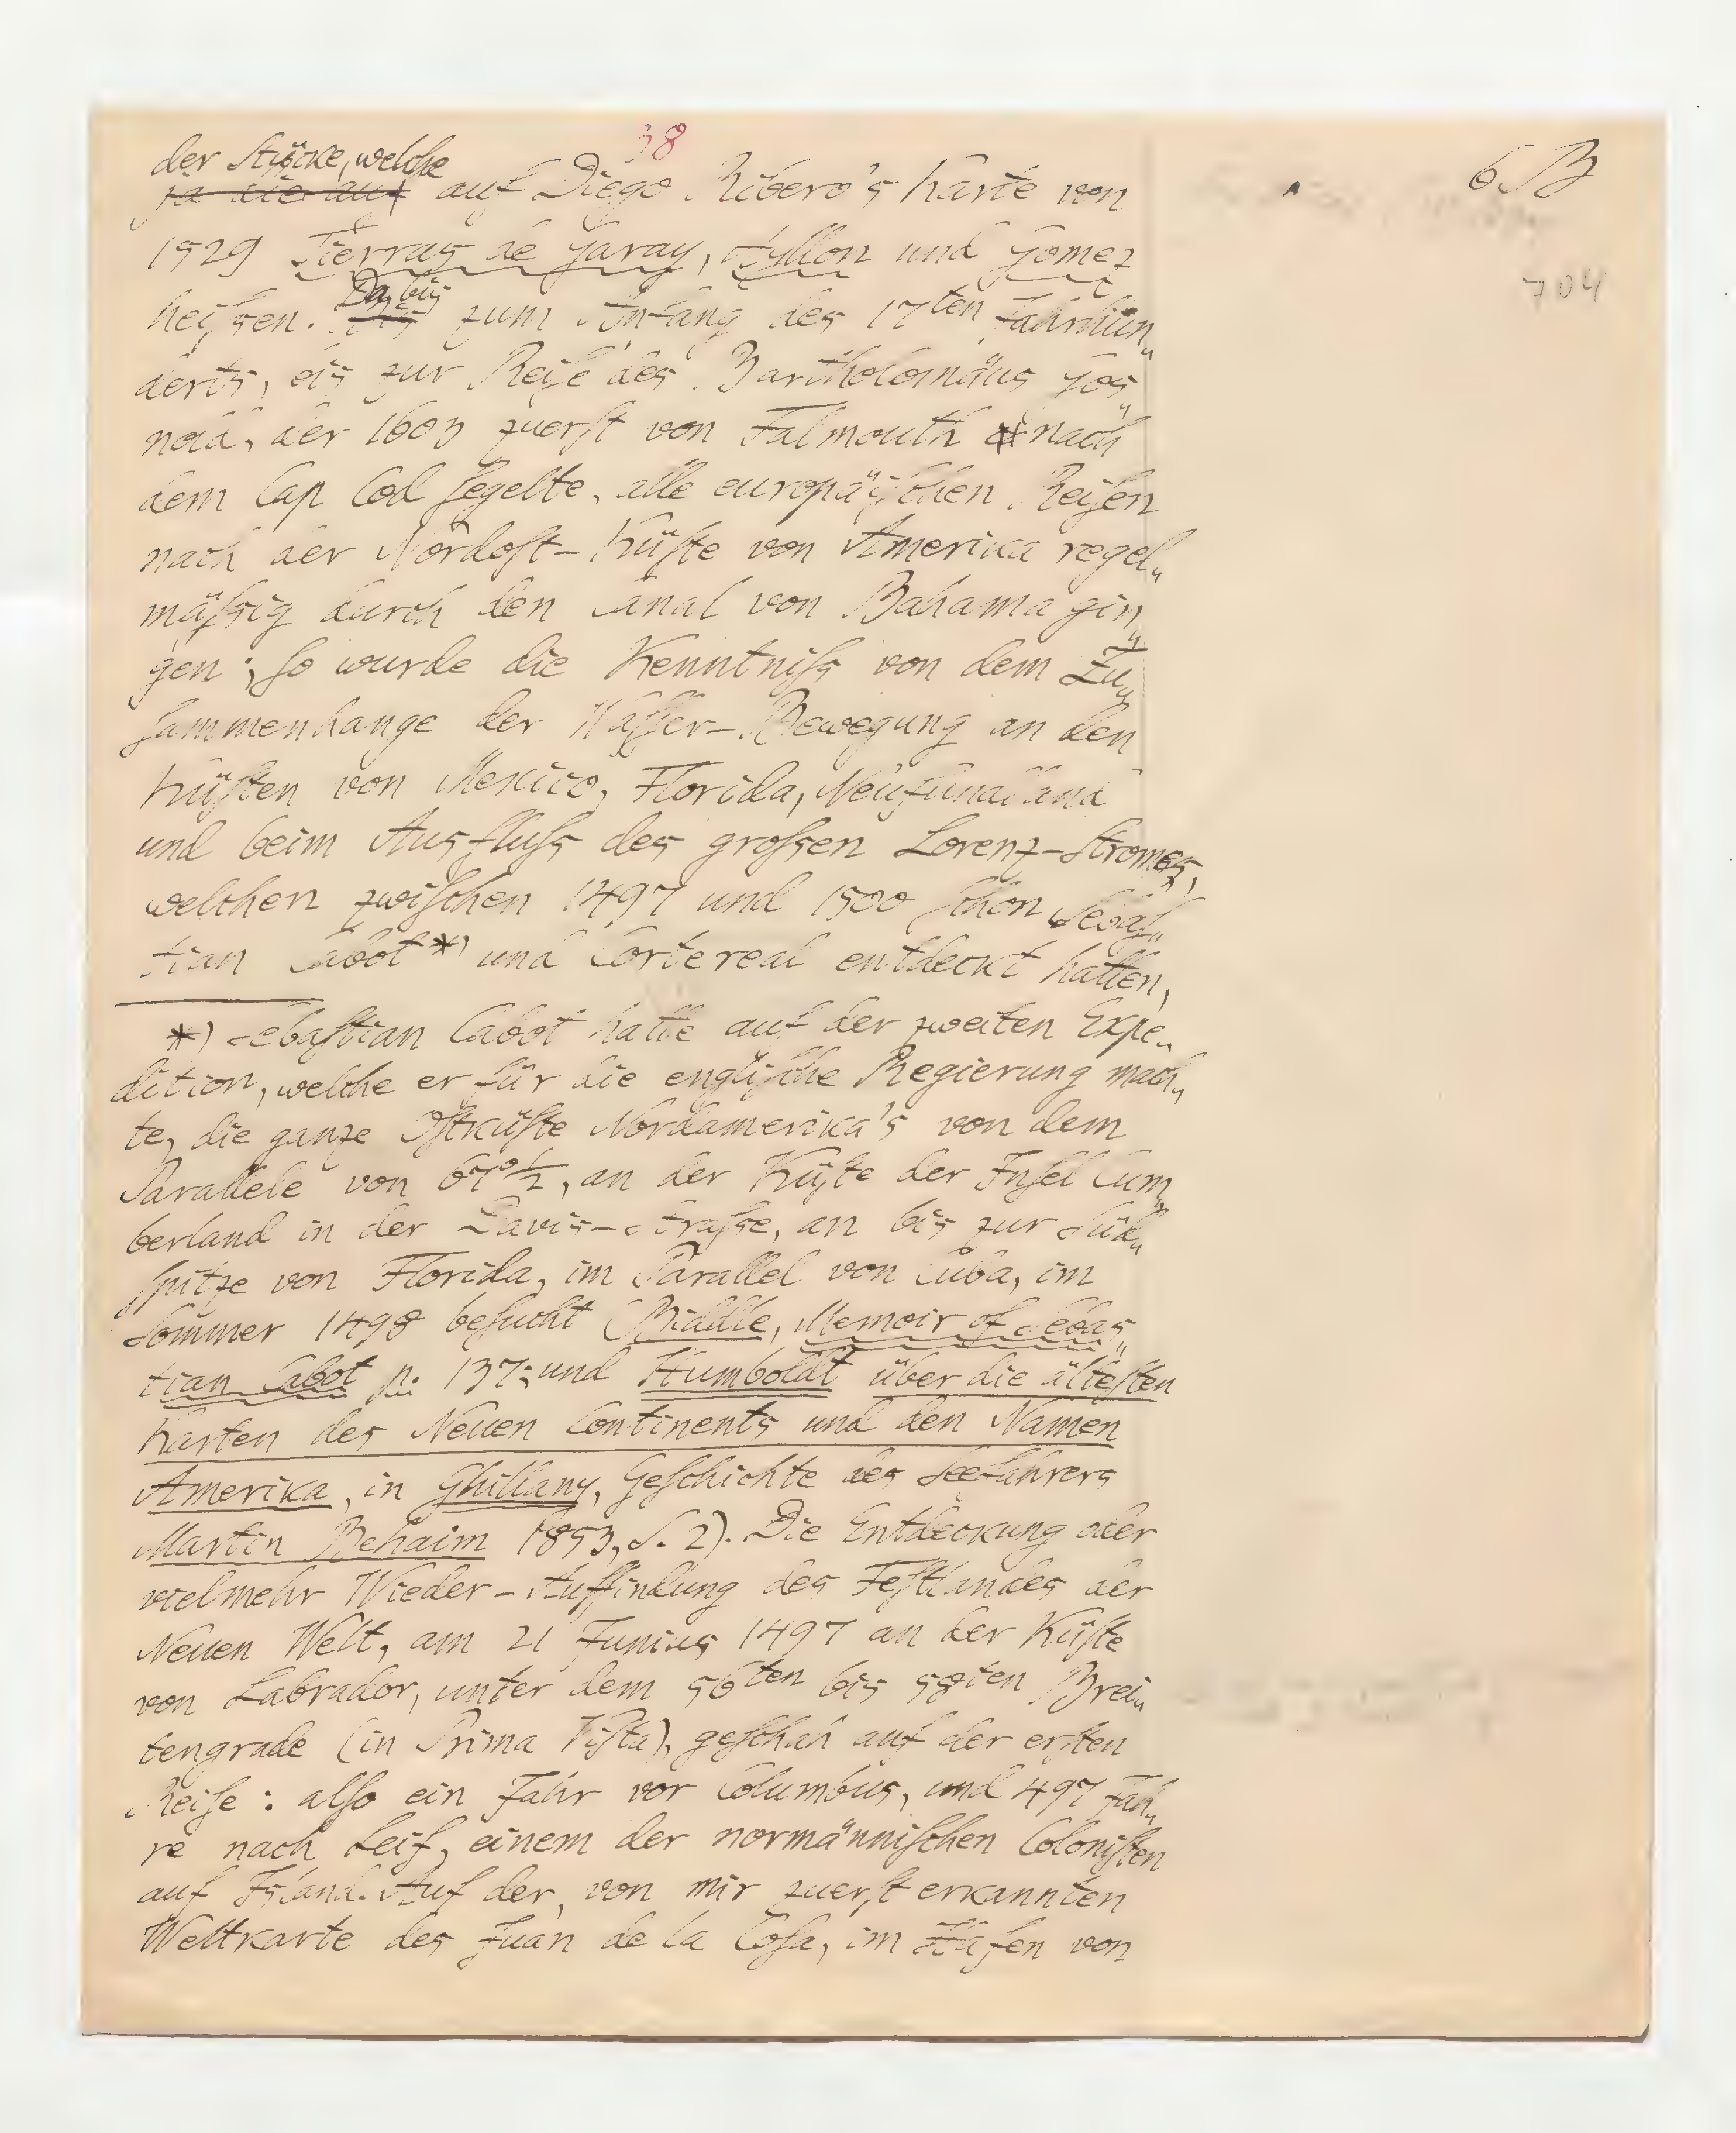 38
6B
704
der Stücke, welche
auf Diego Ribero's Karte von
1529 Tierras de Garay, Ayllon und Gomez
heißen. Da bis zum Anfang des 17ten Jahrhun„
derts, bis zur Reise des Bartholomäus Gos„
nold, der 1603 zuerst von Falmouth nach
dem Cap Cod segelte, alle europäischen Reisen
nach der Nordost-Küste von Amerika regel„
mäßig durch den Canal von Bahama gin„
gen; so wurde die Kenntniß von dem Zu„
sammenhange der Wasser-Bewegung an den
Küsten von Mexico, Florida, Neufundland
und beim Ausfluß des großen Lorenz-Stromes,
welchen zwischen 1497 und 1500 schon Sebas„
tian Cabot*) und Cortereal entdeckt hatten,
*) Sebastian Cabot hatte auf der zweiten Expe„
dition, welche er für die englische Regierung mach„
te, die ganze Ostküste Nordamerika's von dem
Parallele von 67°½, an der Küste der Insel Cum„
berland in der Davis-Straße, an bis zur Süd„
spitze von Florida, im Parallel von Cuba, im
Sommer 1498 besucht (Biddle, Memoir of Sebas„
tian Cabot p. 137; und Humboldt über die ältesten
Karten des Neuen Continents und den Namen
Amerika, in Ghillany, Geschichte des Seefahrers
Martin Behaim 1853, S. 2). Die Entdeckung oder
vielmehr Wieder-Auffindung des Festlandes der
Neuen Welt, am 21 Junius 1497 an der Küste
von Labrador, unter dem 56ten bis 58ten Brei„
tengrade (in Prima Vista), geschah auf der ersten
Reise: also ein Jahr vor Columbus, und 497 Jah„
re nach Leif, einem der normännischen Colonisten
auf Island. Auf der, von mir zuerst erkannten
Weltkarte des Juan de la Cosa, im Hafen von